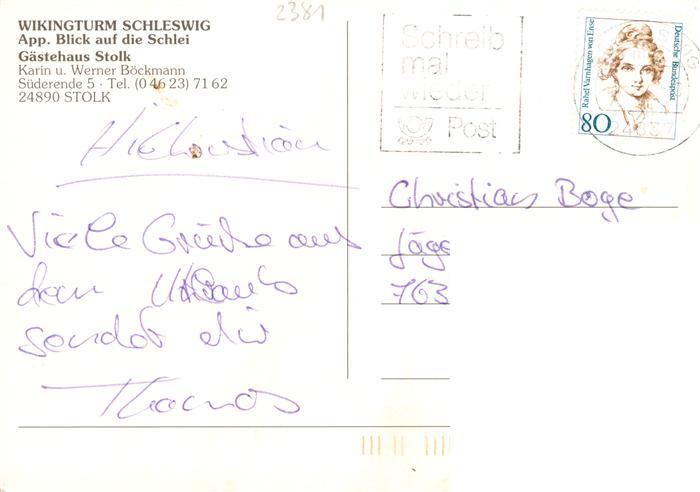 2381
WIKINGTURM SCHLESWIG
App. Blick auf die Schlei
Gästehaus Stolk
Karin u. Werner Böckmann
Süderende 5 · Tel. (0 46 23) 71 62
24890 STOLK
Schreib
mal
wieder
Post
Rahel Varnhagen von Ense
Deutsche Bundespost
80
24837
Hi Christian
Viele Grüße aus
dem Urlaub
sendet dir
Thomas
Christian Boge
Jäge
763